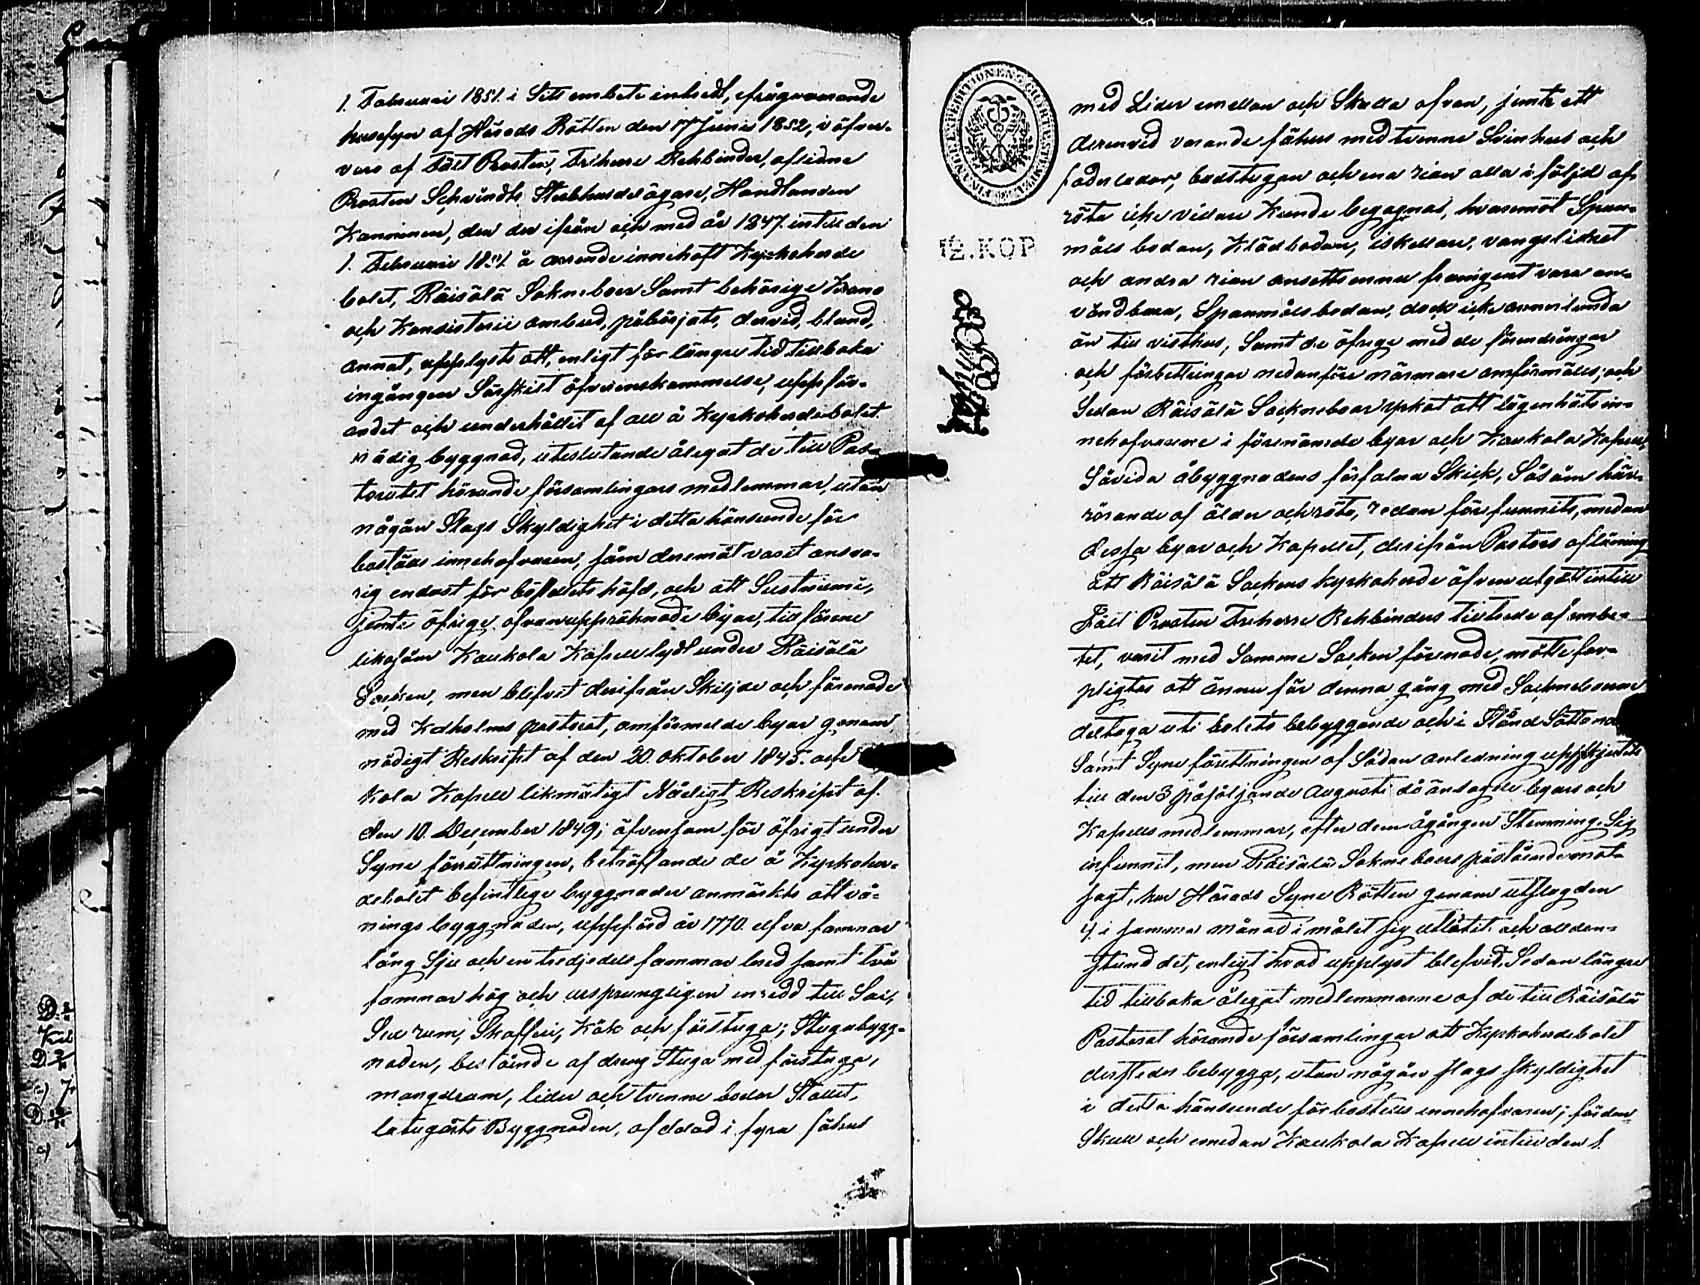 1. Februari 1851. i sitt embete inträdt, efrågavarande
husesyn af Härads Rätten den 17 Junii 1852, i öfver-
varo af bäst Prosten, Friherre Rehbinder, aflidne
Prosten Schrindts Sterbhusdelägare, Handlanden
Kanninen, den der ifrån och med år 1847. intill den
1. Februarii 1851. å arrende innehaft Kyrkoherde
bolet, Räisälä Sokneboer samt behörige Krono
och Konsistorii ombud, påbörjats, dervid, bland,
annat, upplysts att, enligt för längre tid tillbaka
ingången särskilt öfverenskommelse, uppför-
andet och underhållet af all å Kyrkoherdebolet
nödig byggnad, uteslutande ålegat de till Pas-
toratet hörande församlingars medlemmar, utan
någon slags skyldighet i detta hänseende för
boställs innehafvaren, som deremot varit ansva-
rig endast för boställets häfd, och att
jemte öfrige ofvanuppräknade byar, till förene
likasom Kaukola Kapell lydt under Räisälä
Socken, men blifvit derifrån skiljde och förenade
med Kexholms pastorat, omförmelde byar genom
nådigt Reskript af den 20. oktober 1845. och
kola Kapell likmätigt Nådigt Reskript af
den 10. December 1849; äfvensom för öfrigt under
Syne förrättningen, beträffande de å Kyrkoher-
debolet befintlige byggnader anmärkts att vå-
nings byggnaden, uppförd år 1770. elfva famnar
lång sju och en tredjedels famnar bred samt två
famnar hög och ursprungligen inredd till Sal,
Sju rum, Skafferi, Kök och förstuga; Stugubygg-
naden, bestående af dreng Stuga med förstuga,
mangelrum, lider och tvenne bodar Stallet,
ladugårds Byggnaden, afdelad i fyra fähus
FINANCE EXPEDITIONENS CHARTÆSTEMPEL
12. KOP
med Lider emellan och Skulla ofvan, jemte ett
derinvid varande fähus med tvenne Svinhus och
foderlador, badstugan och ena rian alla i följd af
röta icke vidare kunde begagnas, hvaremot Span-
måls bodan, Klädbodan, iskällare, vangslidret
och andra rian ansetts ännu framgent vara an-
vändbara, Spannmålsbodan, dock icke annorlunda
än till visthus, samt de öfrige med de förändringar
och förbettringar nedanföre närmare omförmäles; och
sedan Räisälä Sockneboar yrkat att lägenhäts in-
nehafvarne i förenämnde byar och Kaukola Kapell,
såvida åbyggnadens förfallna skick, såsom här-
rörande af ålder och röta, redan förfunnits, medan
dessa byar och Kapellet, derifrån Pastors aflöning
åtr Räisälä Sockens kyrkoherde äfven utgått intill
bäst Prosten Friherre Rehbinders tillträde af embe-
tet, varit med samme Socken förenade, måtte för-
pligtas att ännu för denna gång med Socknebonne
deltaga uti bolets bebyggande och i stånd sättande
samt Syne förrättningen af sådan anledning uppskjutits
till den 3 påföljande Augusti då ansagde byars och
Kapells medlemmar, efter dem ågången Stemning sig
infunnit, men Räisälä Sokne boers påstående mot-
sagt, har Härads Syne Rätten genom utslag den
4. i samma månad i målet sig utlåtit: och allden-
stund det, enligt hvad upplyst blefvit, sedan längre
tid tillbaka ålegat medlemmarne af de till Räisälä
Pastorat hörande församlingar att Kyrkoherdebolet
derstedes bebygga, utan någon slags skyldighet
i detta hänseende för boställs innehafvaren; för den
Skull och emedan Kaukola Kapell intill den 1.